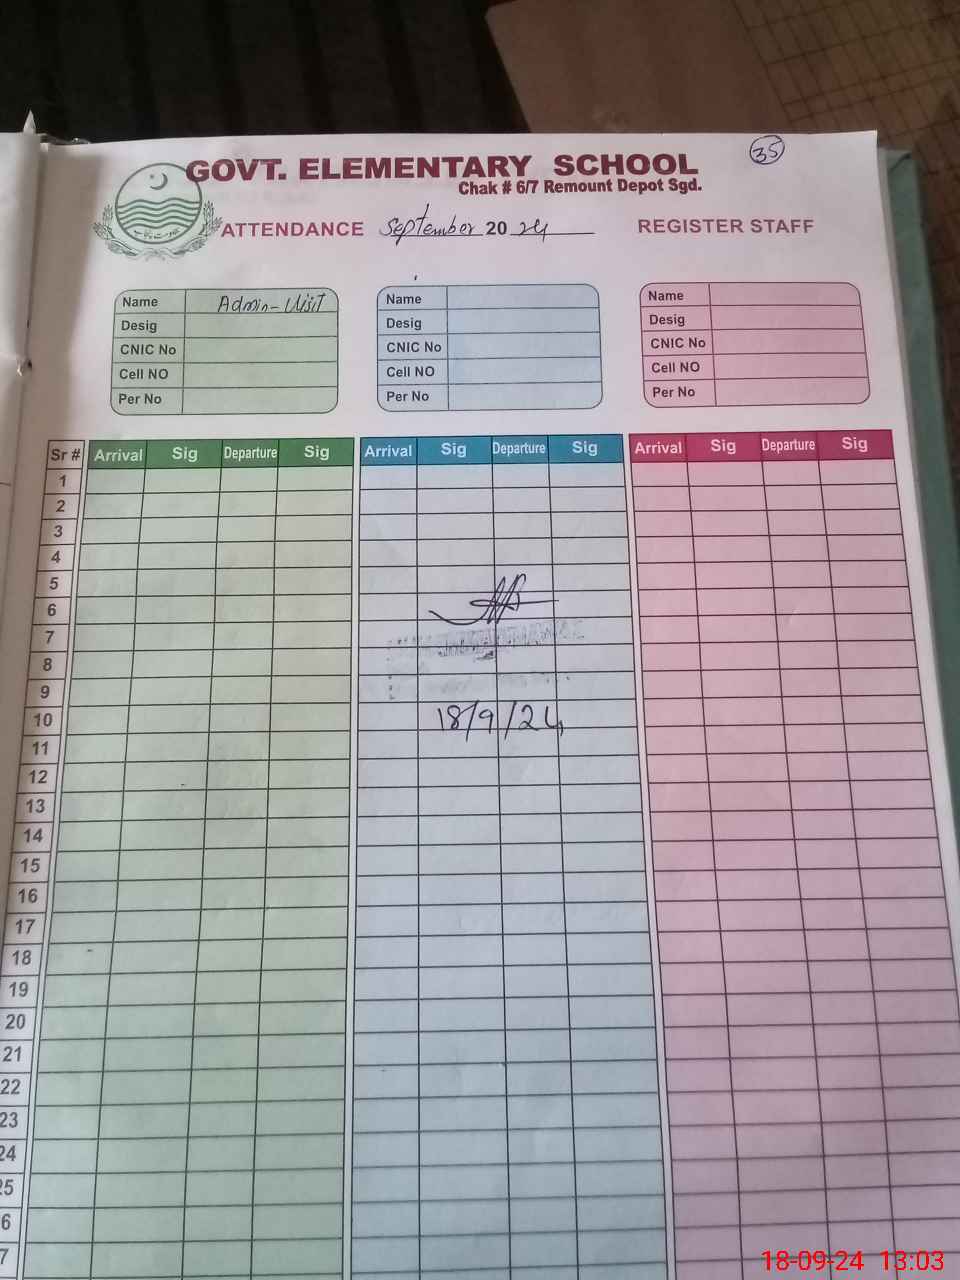 GOVT. ELEMENTARY SCHOOL
35
Chak # 6/7 Remount Depot Sgd.
ATTENDANCE September 20 24 REGISTER STAFF
Name Admin-Visit
Desig
CNIC No
Cell NO
Per No
Name
Desig
CNIC No
Cell NO
Per No
Name
Desig
CNIC No
Cell NO
Per No
Sr # Arrival Sig Departure Sig Arrival Sig Departure Sig Arrival Sig Departure Sig
1
2
3
4
5
6
7
8
9
10
18/9/24
11
12
13
14
15
16
17
18
19
20
21
22
23
24
25
6
7
18-09-24 13:03